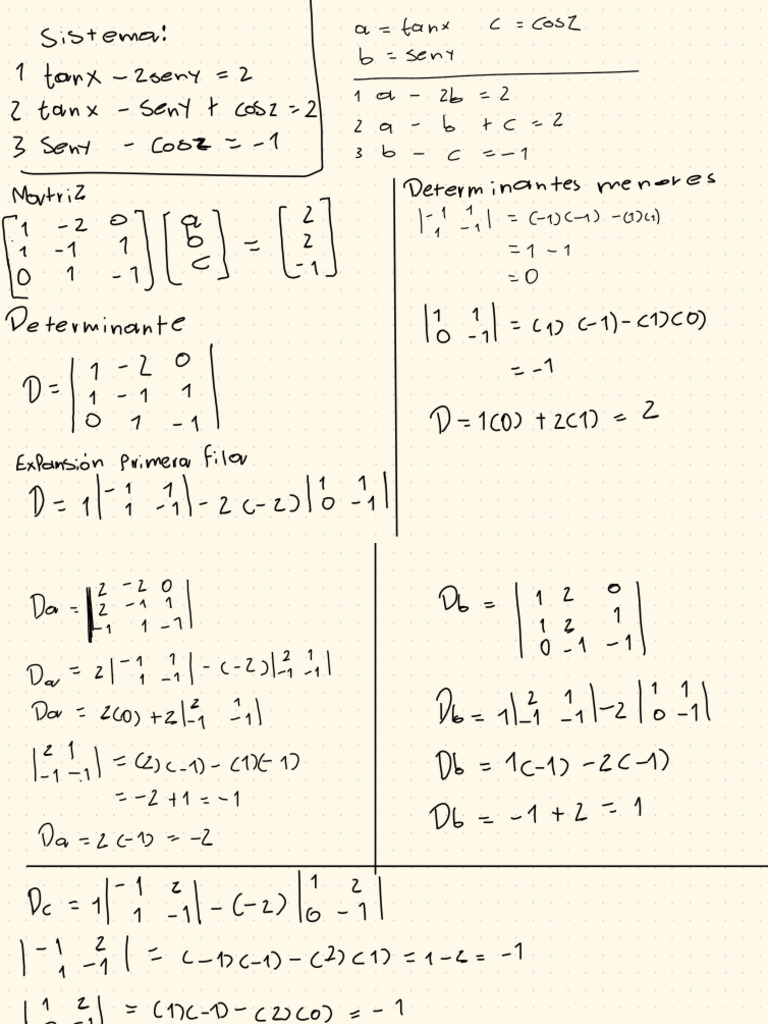 Sistema:
1 tanx - 2seny = 2
2 tanx - seny + cosz = 2
3 seny - cosz = -1
a = tanx c = cosz
b = seny
1 a - 2b = 2
2 a - b + c = 2
3 b - c = -1
Matriz
[1 -2 0] [a] = [2]
[1 -1 1] [b] [2]
[0 1 -1] [c] [-1]
Determinante
D = |1 -2 0|
|1 -1 1|
|0 1 -1|
Expansión primera fila
D = 1 |-1 1| - 2 (-2) |1 1|
|1 -1| |0 -1|
Determinantes menores
|-1 1| = (-1)(-1) - (1)(1)
|1 -1|
= 1 - 1
= 0
|1 1| = (1) (-1) - (1)(0)
|0 -1|
= -1
D = 1(0) + 2(1) = 2
Da = |2 -2 0|
|2 -1 1|
|-1 1 -1|
Da = 2 |-1 1| - (-2) |2 1|
|1 -1| |-1 -1|
Da = 2(0) + 2 |2 1|
|-1 -1|
|2 1| = (2)(-1) - (1)(-1)
|-1 -1|
= -2 + 1 = -1
Da = 2(-1) = -2
Db = |1 2 0|
|1 2 1|
|0 -1 -1|
Db = 1 |2 1| - 2 |1 1|
|-1 -1| |0 -1|
Db = 1(-1) - 2(-1)
Db = -1 + 2 = 1
Dc = 1 |-1 2| - (-2) |1 2|
|1 -1| |0 -1|
|-1 2| = (-1)(-1) - (2)(1) = 1 - 2 = -1
|1 -1|
|1 2| = (1)(-1) - (2)(0) = -1
|0 -1|